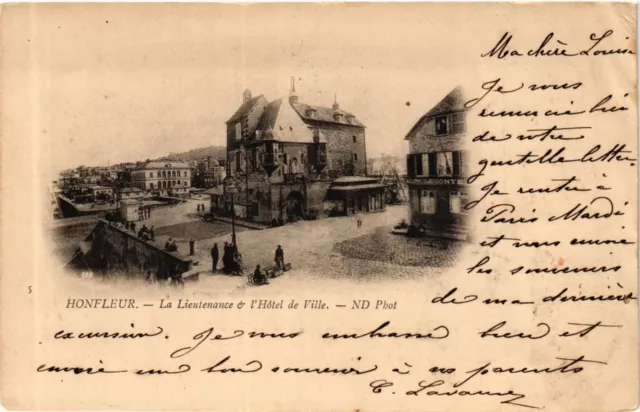 Ma chère Louise
Je vous
remercie bien
de votre
gentille lettre.
Je rentre à
Paris Mardi,
et vous envoie
les souvenirs
de ma dernière
excursion. Je vous embrasse bien et
envoie un bon souvenir à vos parents
LECONTE
5
HONFLEUR. — La Lieutenance & l'Hôtel de Ville. — ND Phot